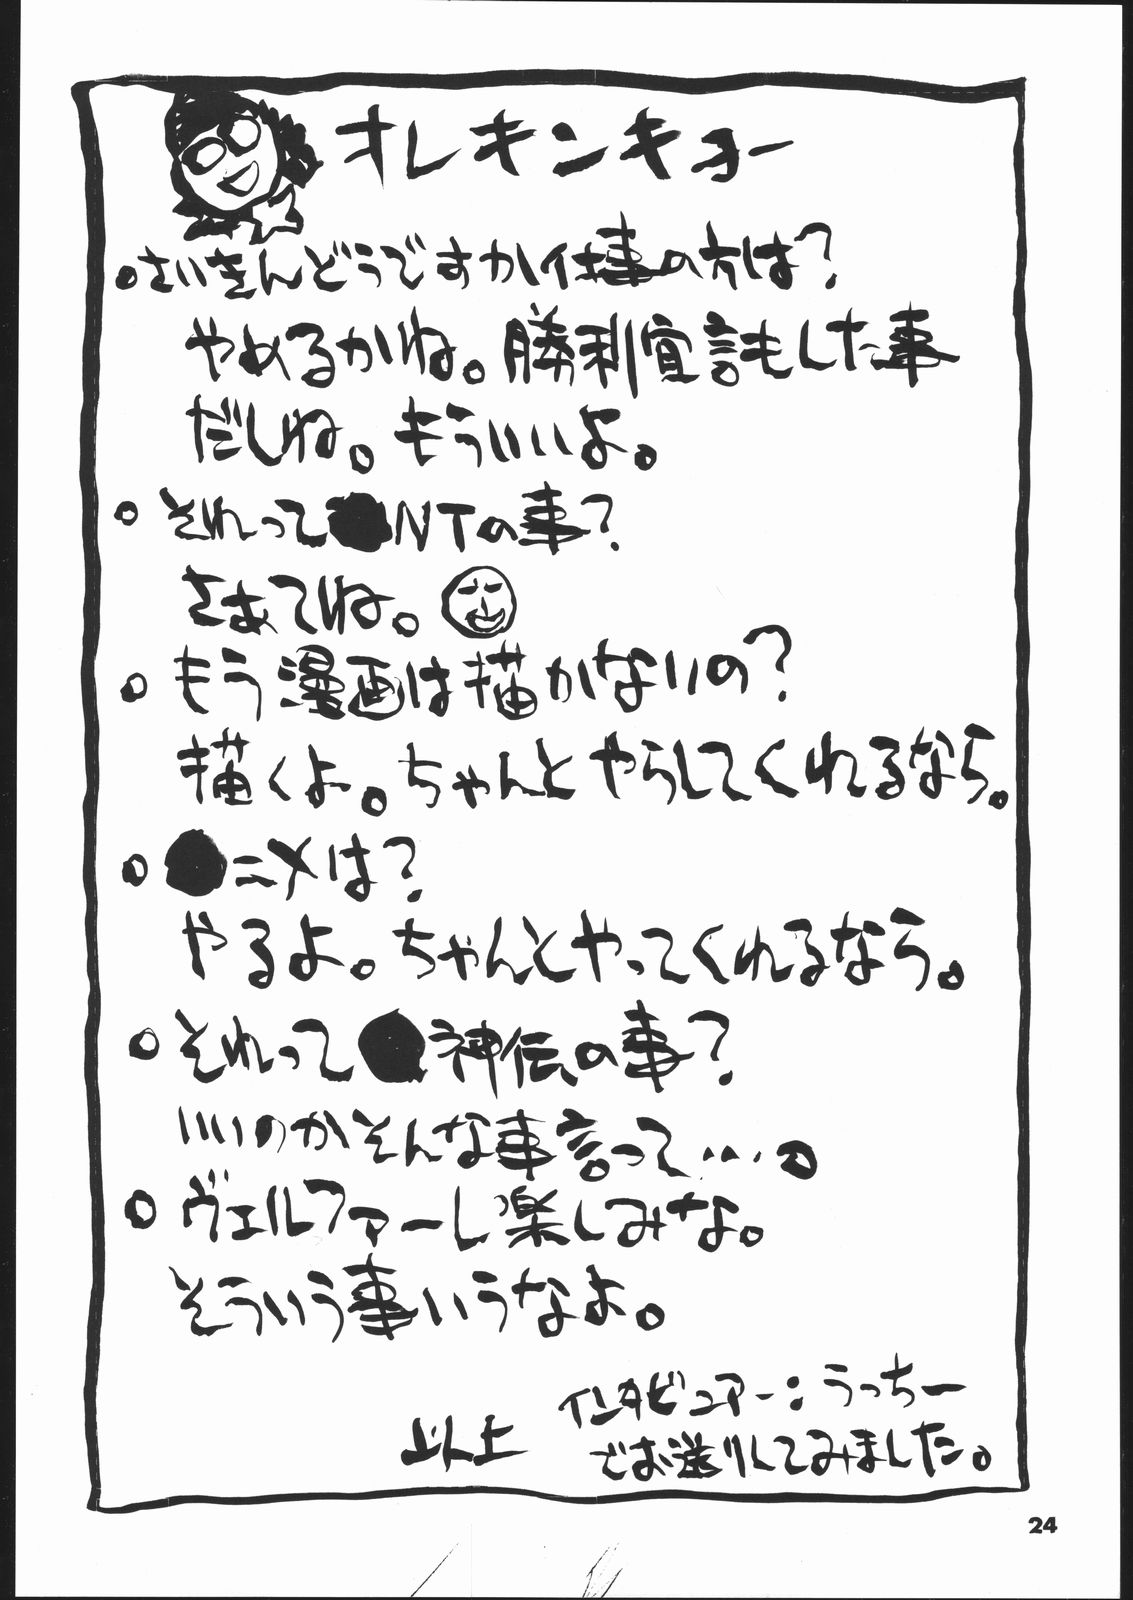 オレキンキョー
○さいきんどうですか仕事の方は?
やめるかね。勝利宣言もした事
だしね。もういいよ。
○それって●NTの事?
さあてね。
○もう漫画は描かないの?
描くよ。ちゃんとやらしてくれるなら。
○●ニメは?
やるよ。ちゃんとやってくれるなら。
○それって●神伝の事?
いいのかそんな事言って…。
○ヴェルファーレ楽しみな。
そういう事いうなよ。
インタビュアー:うっちー
以上 でお送りしてみました。
24